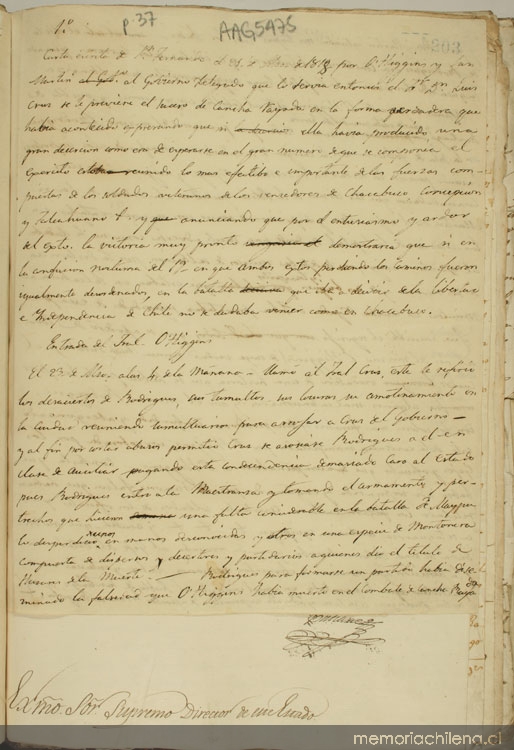 1º p. 37 AAG5475 203
Carta escrita de Sn. Fernando el 21 de Mzo. de 1818 por O'Higgins y San
Martin al Gobierno Delegado que lo servia entonces el Dn. Luis
Cruz se le previene el suceso de Cancha rayada en la forma verdadera que
habia acontecido expresando que si ella havia producido una
gran desercion como era de esperarse en el gran numero de que se componia el
Egercito reunido lo mas efectibo e importante de las fuerzas com-
puestas de los soldados veteranos de los vencedores de Chacabuco Concepcion
y Talcahuano y anunciando que por el entusiasmo y ardor
del expto. la victoria muy pronto demostraria que si en
la confusion nocturna del 19 en que ambos extos perdiendo los caminos fueron
igualmente desordenados, en la batalla que iba a decidir de la libertad
e Independencia de Chile no se dudaba vencer como en Chacabuco.
Entrada del Gral. O'Higgins
El 23 de Mzo. a las 4 de la Mañana – llamó al Gral Cruz, este le refirió
los desaciertos de Rodriguez, sus tumultos, sus amotinamiento en
la Ciudad reuniendo tumultuarios para arrojar a Cruz del Gobierno –
y al fin por evitar abusos permitió Cruz se asociase Rodriguez a el en
clase de auxiliar pagando esta condescendencia demasiado caro al Estado
pues Rodriguez entró a la Maestranza y tomando el armamento y per-
trechos que hicieron una falta considerable en la batalla de Maypu
lo desperdició unos en manos desconocidas y otros en una especie de Montonera
compuesta de dispersos y desertores y partidarios a quienes dio el titulo de
Husares de la Muerte. – Rodriguez para formarse un partido habia dise-
minado la falsedad que O'Higgins habia muerto en el Combate de Cancha Rayada
Exmo. Sor. Supremo Director de un Estado
memoriachilena.cl